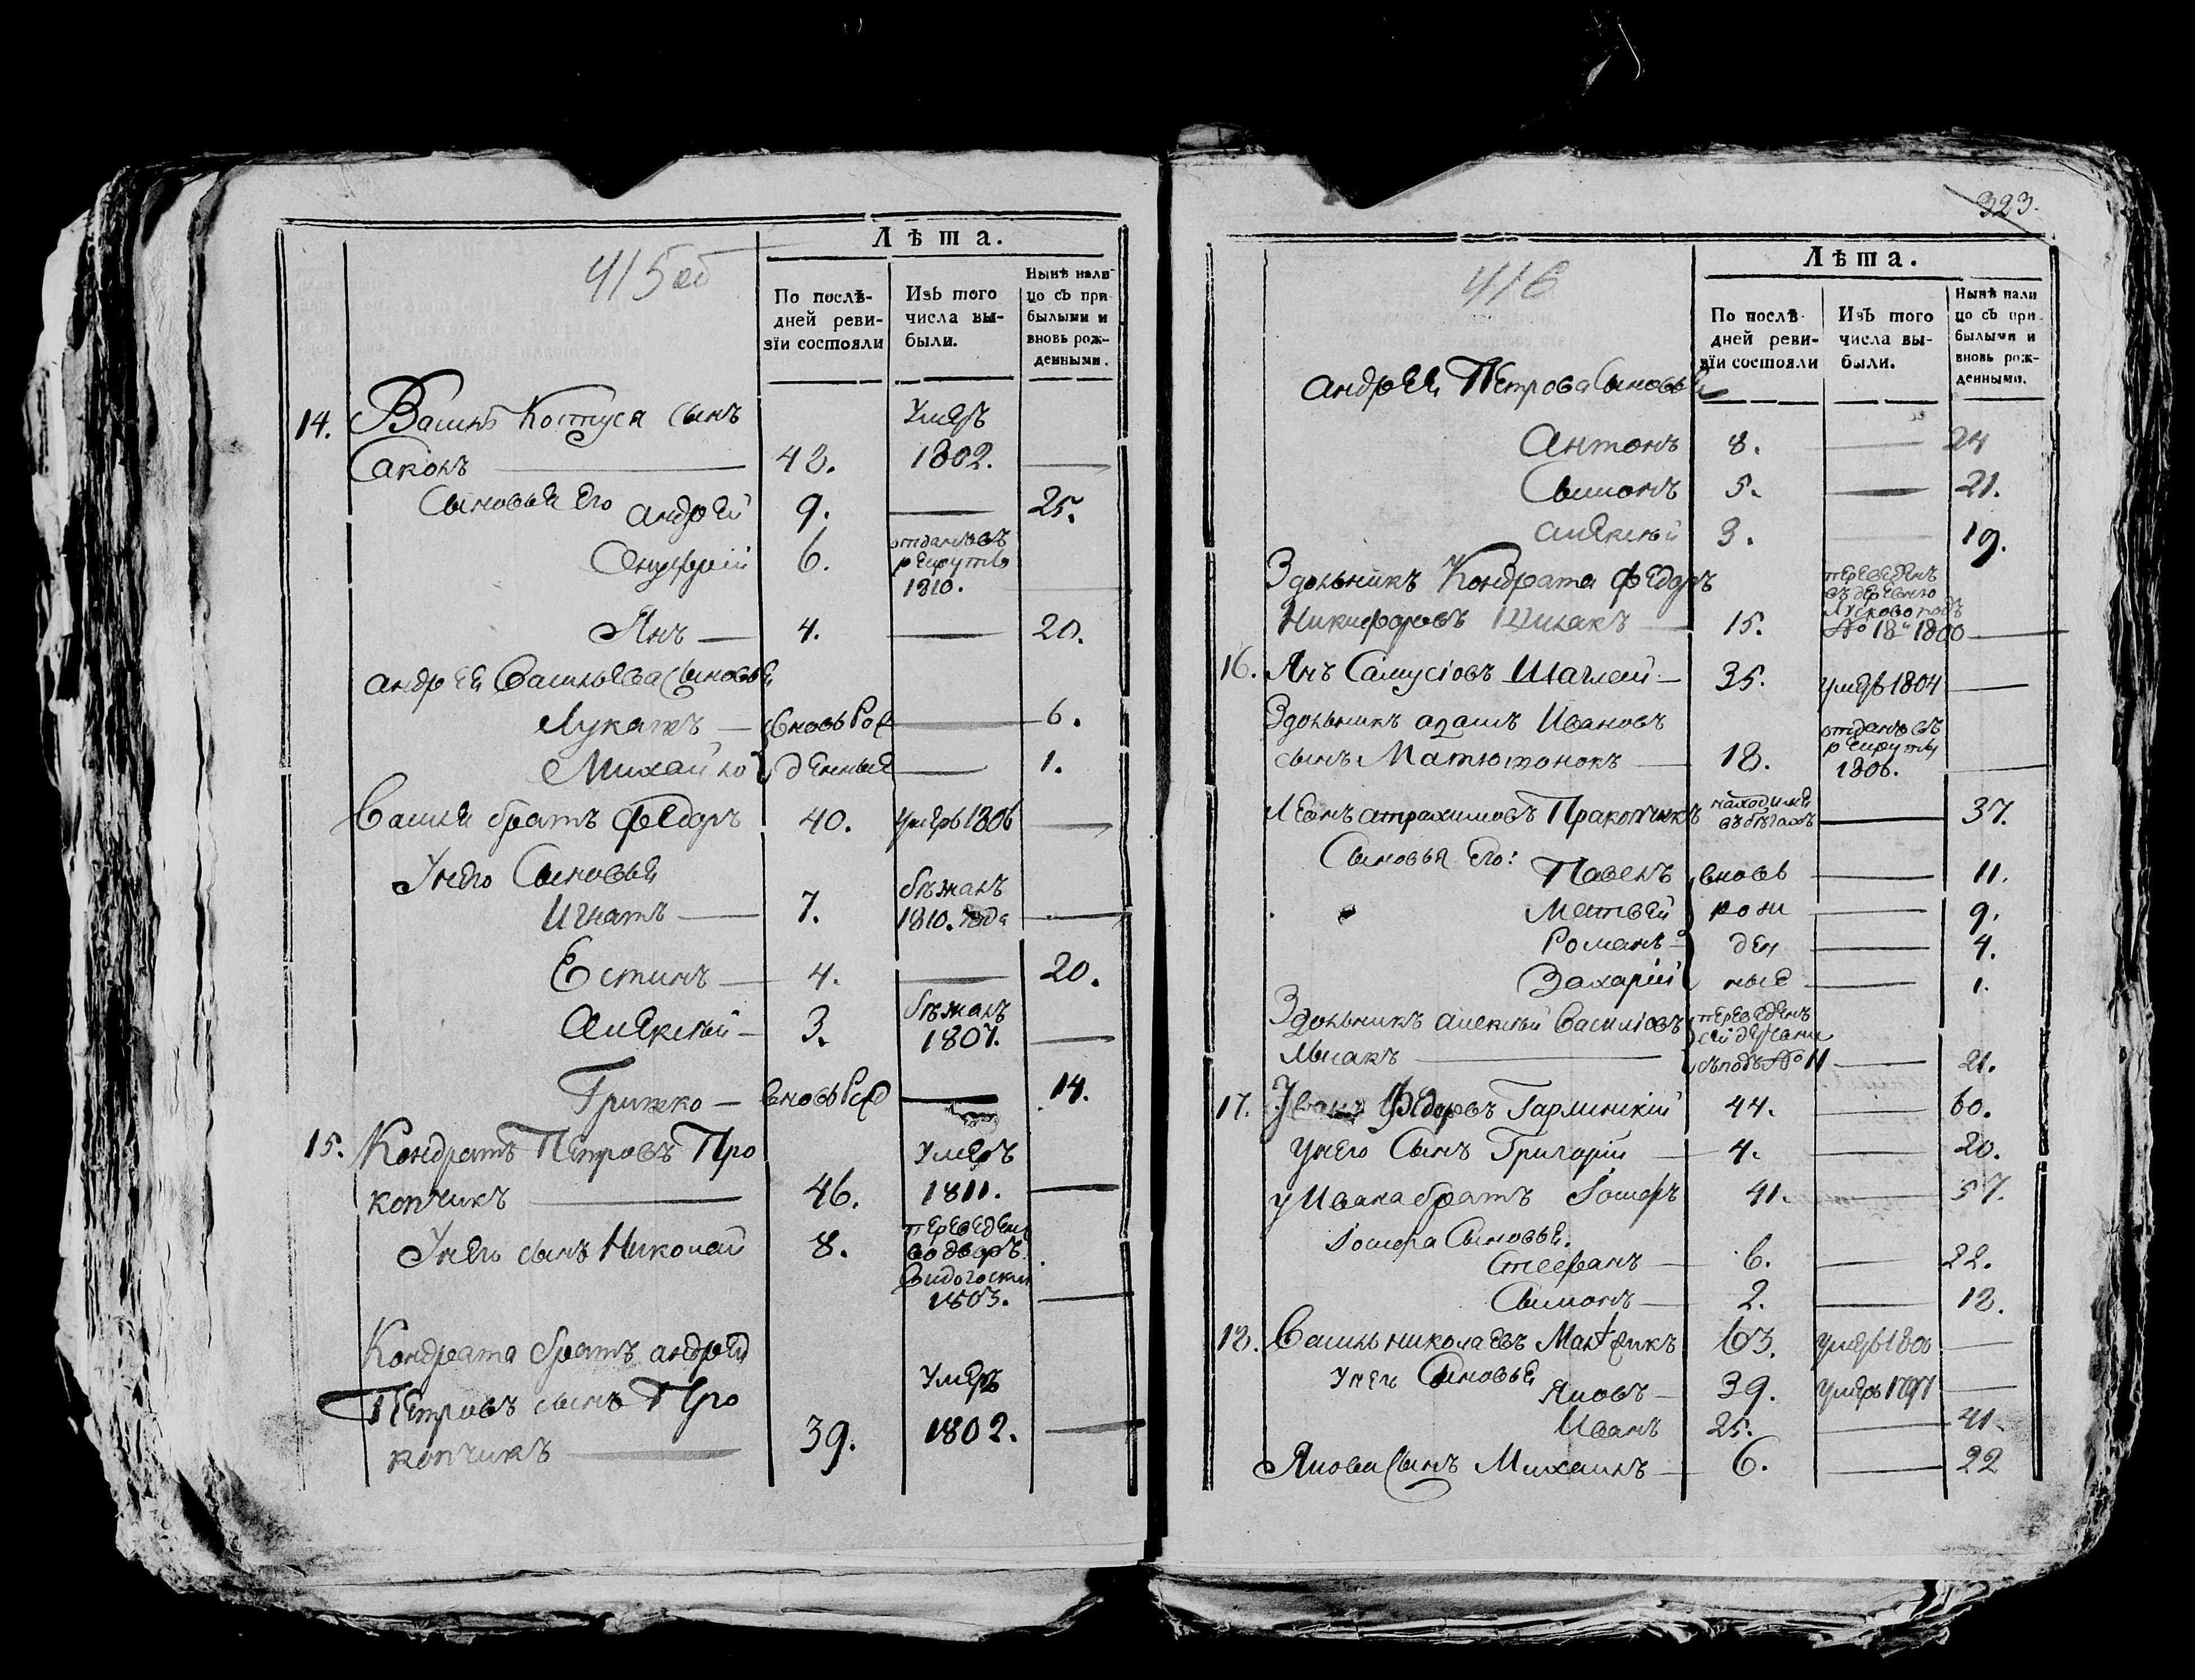 415об
Лѣта.
По послѣ-
дней реви-
зїи состояли
Изъ того
числа вы-
были.
Нынѣ нали
цо съ при
былыми и
вновь рож-
денными.
14. Василь Костуся сынъ Умеръ
Саколъ 48. 1802.
Сыновья Его андрей 9. 25.
Ануфрій 6. отданъ въ
рекруты
1810.
Янъ 4. 20.
андрея Васильева Сыновья
Лукашъ вновь Рож 6.
Михайло денные 1.
Василя братъ Федоръ 40. умеръ 1806
У него Сыновья
Игнатъ 7. бѣжалъ
1810. года
Естинъ 4. 20.
Алексѣй 3. бѣжалъ
1807.
Грижко вновь Рож 14.
15. Кондратъ Петровъ Про Умеръ
копчикъ 46. 1811.
У него сынъ Николай 8. переведенъ
во дворъ
1803.
Кондрата братъ андрей
Петровъ сынъ Про Умеръ
копчикъ 39. 1802.
323.
416
Лѣта.
По послѣ-
дней реви-
зїи состояли
Изъ того
числа вы-
были.
Нынѣ нали
цо съ при
былыми и
вновь рож-
денными.
андрея Петрова Сыновья
Антонъ 8. 24
Сымонъ 5. 21.
алексѣй 3. 19.
Здольникъ Кондрата Федоръ переведенъ
въ деревню
Никифоровъ 15. подъ
№ 18 1800
16. Янъ Самусіовъ 35. умеръ 1804
Здольникъ адамъ Ивановъ отданъ въ
рекруты
сынъ Матюшонокъ 18. 1806.
Леонъ атрахимовъ Пракопчикъ находился
въ бѣгахъ 37.
Сыновья Его:
Павелъ вновь 11.
Матвей рож 9.
Романъ ден 4.
Захарій ные 1.
Здольникъ алексѣй Василіовъ переведенъ
подъ № 11 21.
17. Иванъ Федоровъ 44. 60.
у него Сынъ Григорій 4. 20.
у Ивана братъ 41. 57.
Сыновья.
Стефанъ 6. 22.
Сымонъ 2. 18.
18. Василь николаевъ 63. умеръ 1806
У него Сыновья Яковъ 39. умеръ 1797
Иванъ 25. 41.
Якова Сынъ Михаилъ 6. 22